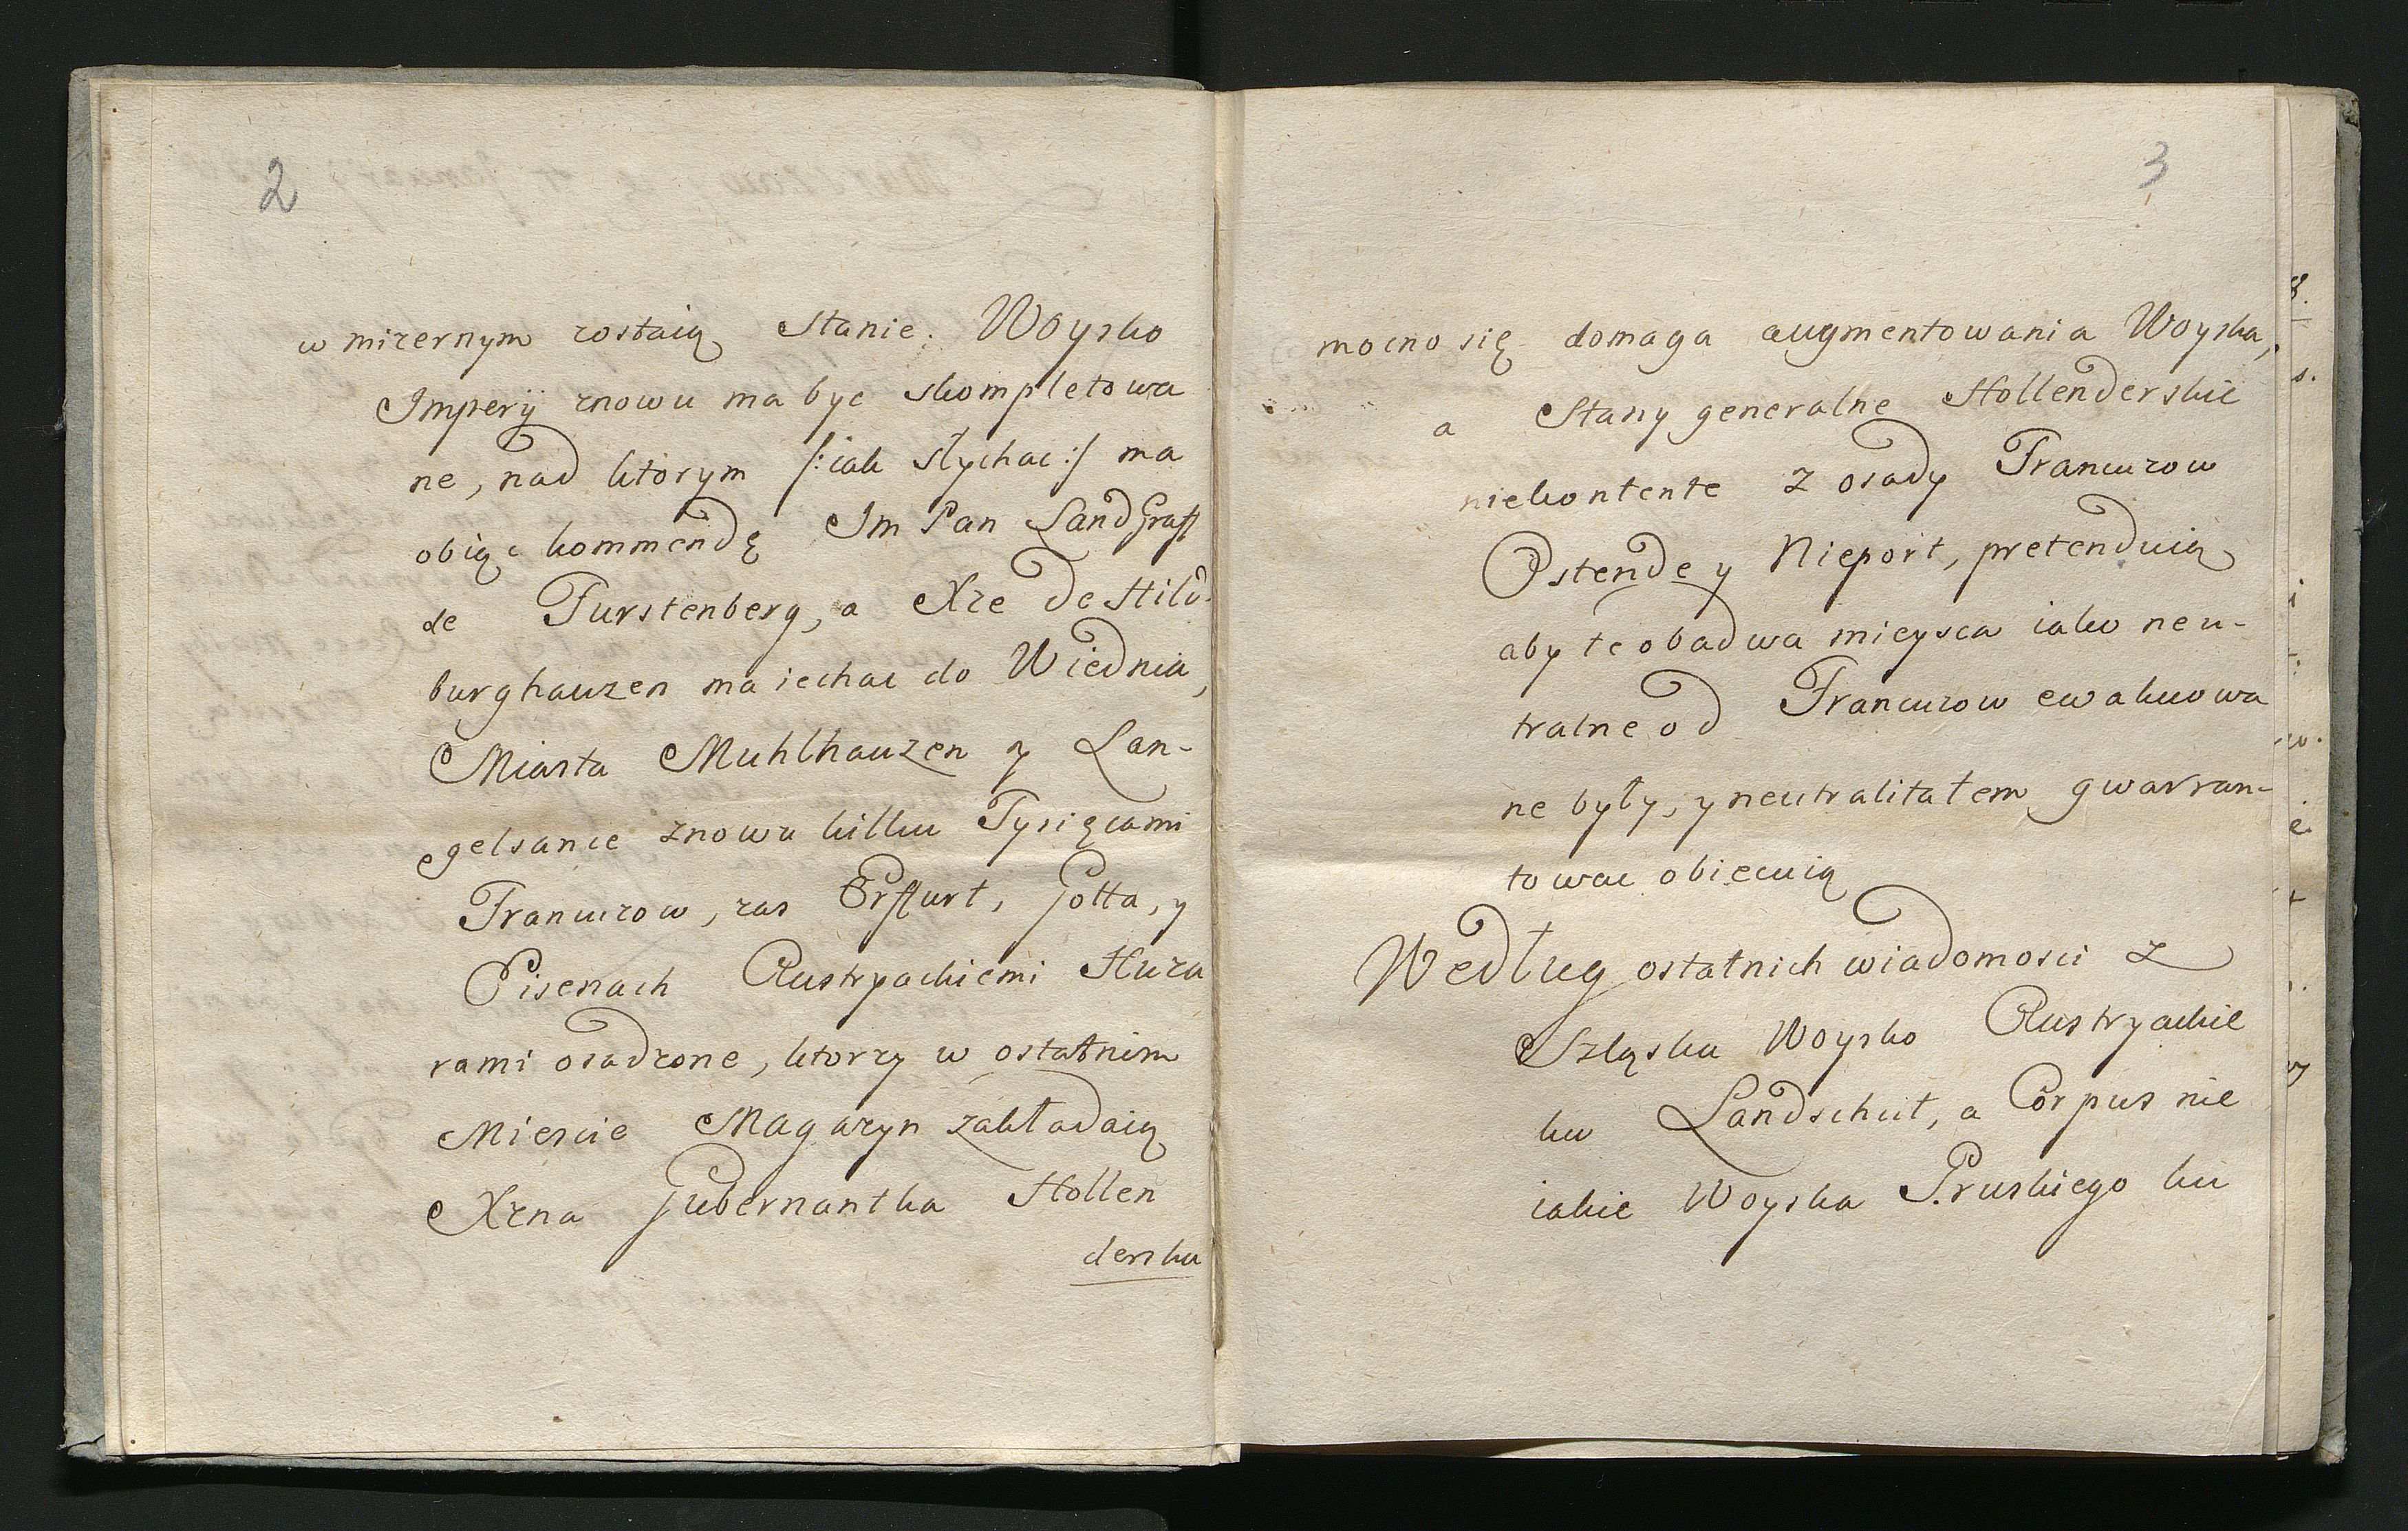 2
w mizernym zostaią Stanie. Woysko
Imperij znowu ma byc skompletowa
ne, nad ktorym /: iak słychac :/ ma
obiąc kommendę Im Pan Landgraff
de Furstenberg, a Xze de Hild-
burghauzen ma iechac do Wiednia,
Miasta Muhlhauzen y Lan-
gelsance znowu kilku Tysięcami
Francuzow, zas Erffurt, Gotta, y
Eisenach Austryackiemi Huza
rami osadzone, ktorzy w ostatnim
Miescie Magazyn zakładaią
Xzna Gubernantka Hollen
derska
3
mocno się domaga augmentowania Woyska,
a Stany generalne Hollenderskie
niekontente z osady Francuzow
Ostende y Nieport, pretenduią
aby te obadwa mieysca iako neu-
tralne od Francuzow ewakuowa
ne były, y neutralitatem gwarran-
towac obiecuią
Według ostatnich wiadomosci z
Szląska Woysko Austryackie
ku Landschut, a Corpus nie
iakie Woyska Pruskiego ku